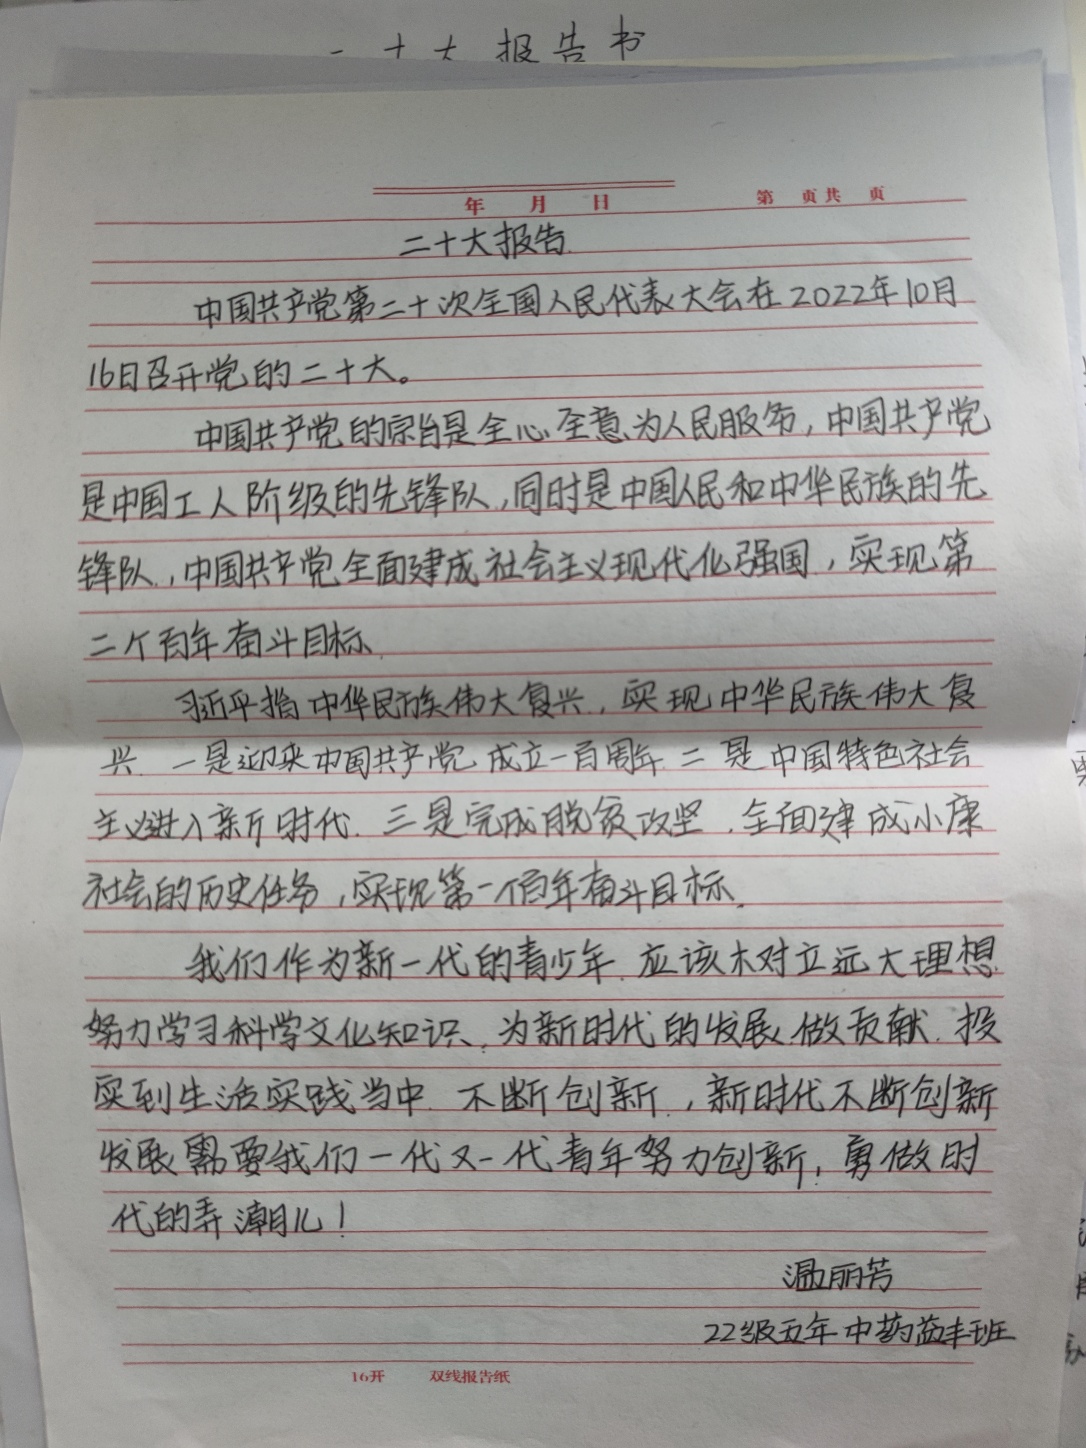 二十大报告书
年 月 日
第 页共 页
二十大报告
中国共产党第二十次全国人民代表大会在2022年10月
16日召开党的二十大。
中国共产党的宗旨是全心全意为人民服务,中国共产党
是中国工人阶级的先锋队,同时是中国人民和中华民族的先
锋队,中国共产党全面建成社会主义现代化强国,实现第
二个百年奋斗目标
习近平指中华民族伟大复兴,实现中华民族伟大复
兴.一是迎来中国共产党成立一百周年.二是中国特色社会
主义进入新时代.三是完成脱贫攻坚.全面建成小康
社会的历史任务,实现第一个百年奋斗目标.
我们作为新一代的青少年.应该木对立远大理想
努力学习科学文化知识.为新时代的发展做贡献.投
实到生活实践当中.不断创新,新时代不断创新
发展需要我们一代又一代青年努力创新,勇做时
代的弄潮儿!
温丽芳
22级五年中药益丰班
16开 双线报告纸